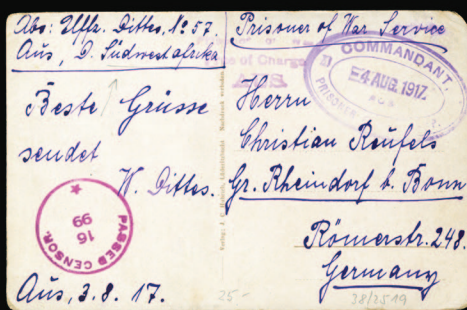 Abs: Uffz. Dittes. № 57.
Aus, D. Südwestafrika
Beste Grüsse
sendet
W. Dittes.
PASSED CENSOR.
16
99
Aus, 3. 8. 17.
25-
Prisoner of War Service
of Charge
COMMANDANT,
4 AUG 1917.
PRISONER
Herrn
Christian Reufels
Gr. Rheindorf b. Bonn
Römerstr. 248.
Germany
38/2519